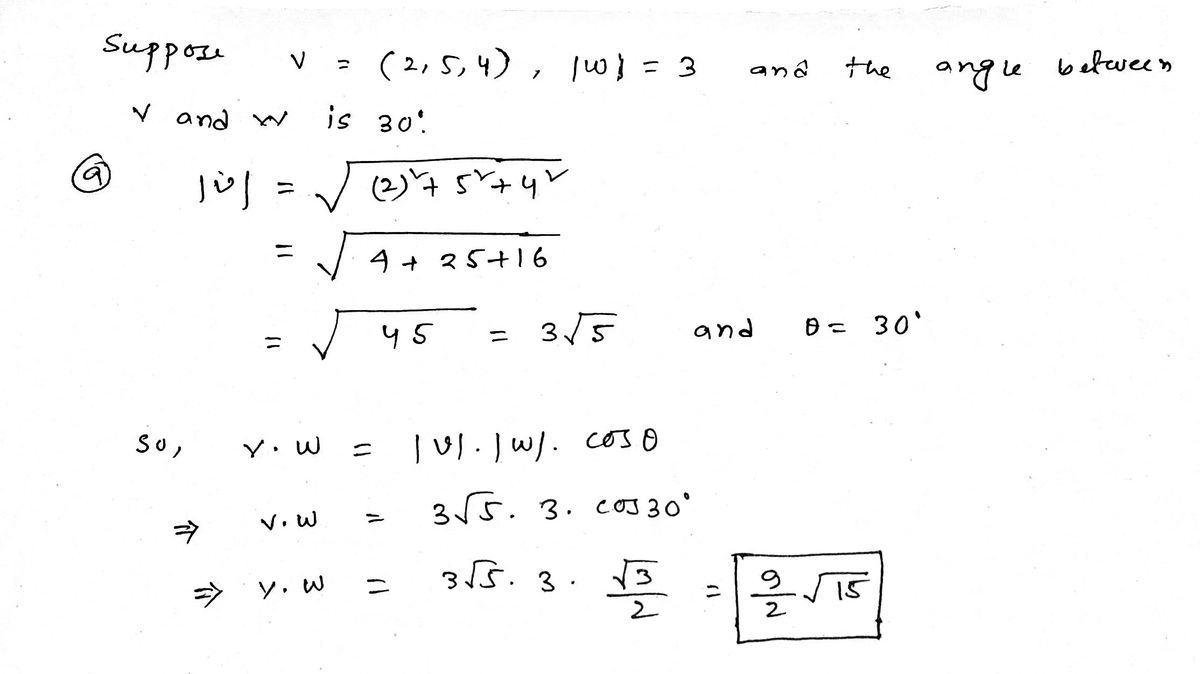 Suppose v = (2, 5, 4), |w| = 3 and the angle between
v and w is 30°.
(a) |v| = √((2)² + 5² + 4²)
= √(4 + 25 + 16)
= √45 = 3√5 and θ = 30°
So, v. w = |v|. |w|. cos θ
⇒ v. w = 3√5. 3. cos 30°
⇒ v. w = 3√5. 3. √3/2 = 9/2 √15